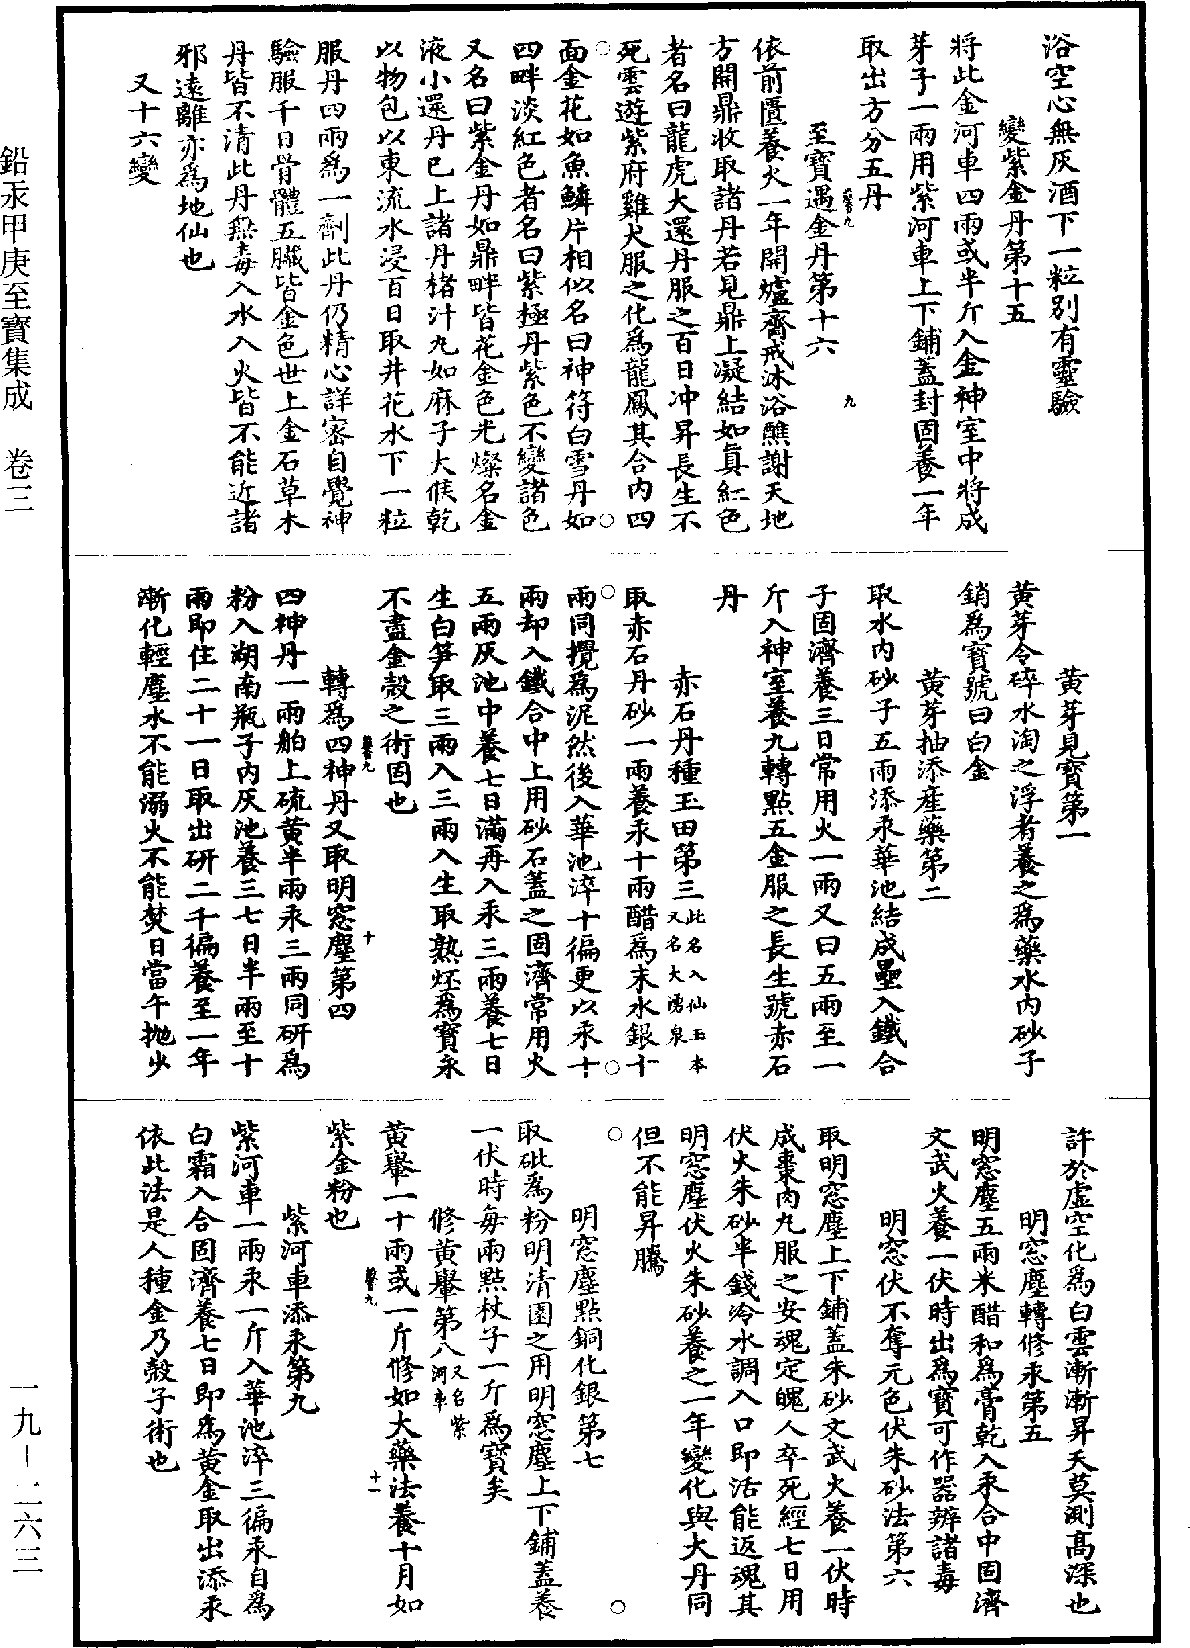 浴空心無灰酒下一粒別有靈驗
變紫金丹第十五
將此金河車四兩或半斤入金神室中將成
芽子一兩用紫河車上下鋪蓋封固養一年
取出方分五丹
至寶遇金丹第十六
依前匱養火一年開爐齋戒沐浴醮謝天地
方開鼎收取諸丹若見鼎上凝結如真紅色
者名曰龍虎大還丹服之百日冲昇長生不
死雲遊紫府雞犬服之化為龍鳳其合內四
面金花如魚鱗片相似名曰神符白雪丹如
四畔淡紅色者名曰紫極丹紫色不變諸色
又名曰紫金丹如鼎畔皆花金色光燦名金
液小還丹已上諸丹楮汁丸如麻子大候乾
以物包以東流水浸百日取井花水下一粒
服丹四兩為一劑此丹仍精心詳密自覺神
驗服千日骨體五臟皆金色世上金石草木
丹皆不清此丹無毒入水入火皆不能近諸
邪遠離亦為地仙也
又十六變
黃芽見寶第一
黃芽令碎水淘之浮者養之為藥水內砂子
銷為寶號曰白金
黃芽抽添產藥第二
取水內砂子五兩添汞華池結成壘入鐵合
子固濟養三日常用火一兩又曰五兩至一
斤入神室養九轉點五金服之長生號赤石
丹
赤石丹種玉田第三此名入仙玉本又名大湧泉
取赤石丹砂一兩養汞十兩醋為末水銀十
兩同攪為泥然後入華池淬十徧更以汞十
兩却入鐵合中上用砂石蓋之固濟常用火
五兩灰池中養七日滿再入汞三兩養七日
生白笋取三兩入三兩入生取熟坯為寶永
不盡金殼之術固也
轉為四神丹又取明窓塵第四
四神丹一兩舶上硫黃半兩汞三兩同研為
粉入湖南瓶子內灰池養三七日半兩至十
兩即住二十一日取出研二千徧養至一年
漸化輕塵水不能溺火不能焚日當午拋少
許於虛空化為白雲漸漸昇天莫測高深也
明窓塵轉修汞第五
明窓塵五兩米醋和為膏乾入汞合中固濟
文武火養一伏時出為寶可作器辨諸毒
明窓伏不奪元色伏朱砂法第六
取明窓塵上下鋪蓋朱砂文武火養一伏時
成棗肉丸服之安魂定魄人卒死經七日用
伏火朱砂半錢冷水調入口即活能返魂其
明窓塵伏火朱砂養之一年變化與大丹同
但不能昇騰
明窓塵點銅化銀第七
取砒為粉明清園之用明窓塵上下鋪蓋養
一伏時每兩點杖子一斤為寶矣
修黃轝第八又名紫河車
黃轝一十兩或一斤修如大藥法養十月如
紫金粉也
紫河車添汞第九
紫河車一兩汞一斤入華池淬三徧汞自為
白霜入合固濟養七日即為黃金取出添汞
依此法是人種金乃殼子術也
鉛汞甲庚至寶集成　卷三
一九－二六三